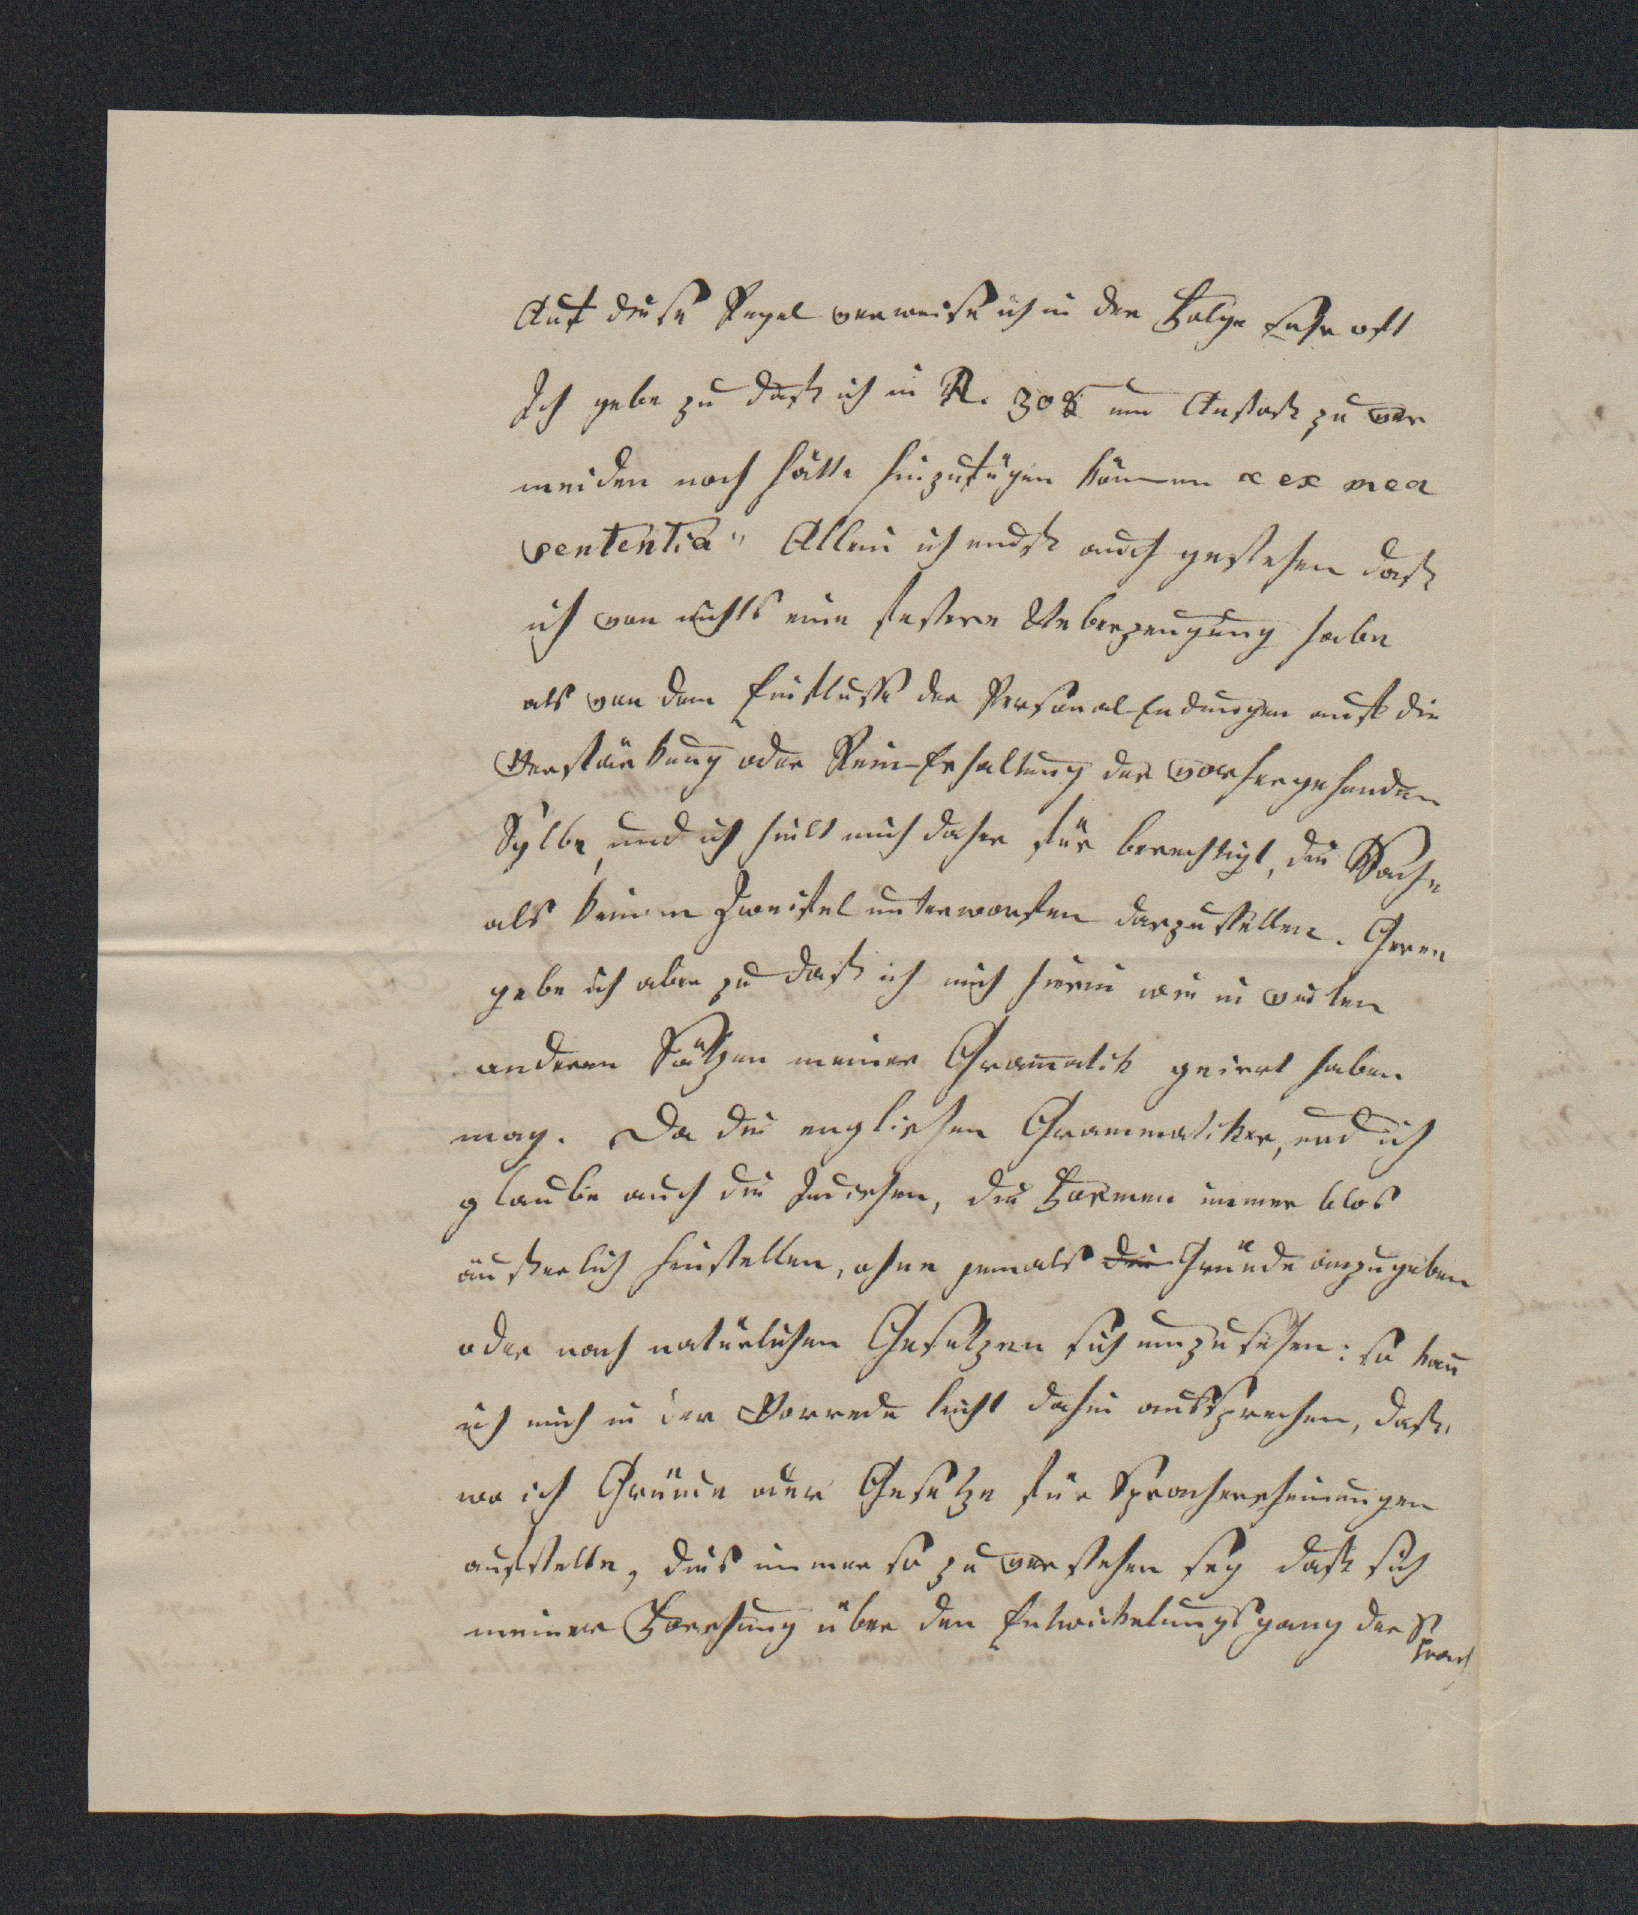 Auf diese Regel verweise ich in der Folge sehr oft
Ich gebe zu daß ich in R. 308 um Anstoß zu ver
meiden noch hätte hinzufügen können „ex mea
sententia" Allein ich muß auch gestehen daß
ich von nichts eine festere Ueberzeugung habe
als von dem Einflusse der Personal-Endungen auf die
Verstärkung oder Rein-Erhaltung der vorhergehenden
Sylbe, und ich hielt mich daher für berechtigt, die Sache
als keinem Zweifel unterworfen darzustellen. Gern
gebe ich aber zu daß ich mich hierin wie in vielen
anderen Sätzen meiner Gramatik geirrt haben
mag. Da die englischen Grammatiker, und ich
glaube auch die Indischen, die Formen immer blos
äußerlich hinstellen, ohne jemals die Gründe anzugeben
oder nach natürlichen Gesetzen sich umzusehen: so kan
ich mich in der Vorrede leicht dahin aussprechen, daß,
wo ich Gründe oder Gesetze für Spracherscheinungen
aufstelle, dies immer so zu verstehen sey daß sich
meiner Forschung über den Entwickelungsgang der Sprach